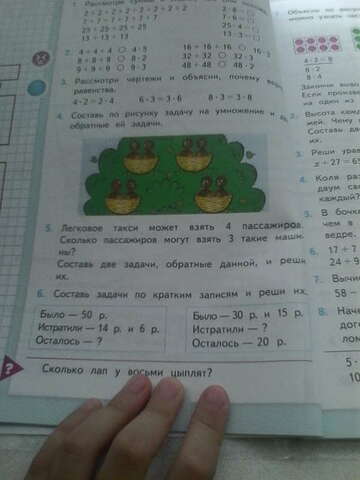 1. Рассмотри
2+2+2+2+2+2+2+2
7+7+7+7+7+7
25+25+25+25
13+13+13
2·8
7·6
25·4
13·3
2. 4+4+4 ○ 4·5
8+8+8 ○ 8·2
9+9+9 ○ 9·3
16+16+16 ○ 16·3
32+32 ○ 32·3
48+48 ○ 48·2
3. Рассмотри чертежи и объясни, почему
равенства.
4·2=2·4 6·3=3·6 8·3=3·8
4. Составь по рисунку задачу на умножение и
обратные ей задачи.
5. Легковое такси может взять 4 пассажиров
Сколько пассажиров могут взять 3 такие маши-
ны?
Составь две задачи, обратные данной, и реши
их.
6. Составь задачи по кратким записям и реши их.
Было — 50 р.
Истратили — 14 р. и 6 р.
Осталось — ?
Было — 30 р. и 15 р.
Истратили — ?
Осталось — 20 р.
? Сколько лап у восьми цыплят?
Объясни по
можно узнать
4·2=8
8:2
8:4
Закончи
Если
на один из
2. Высота
Чему
Составь
3. Реши
x+27=
4. Коля
двум
каждый?
5. В бочке
чем в
ведре.
6. 17+
24+9
7. Вычисли
58 −
8.